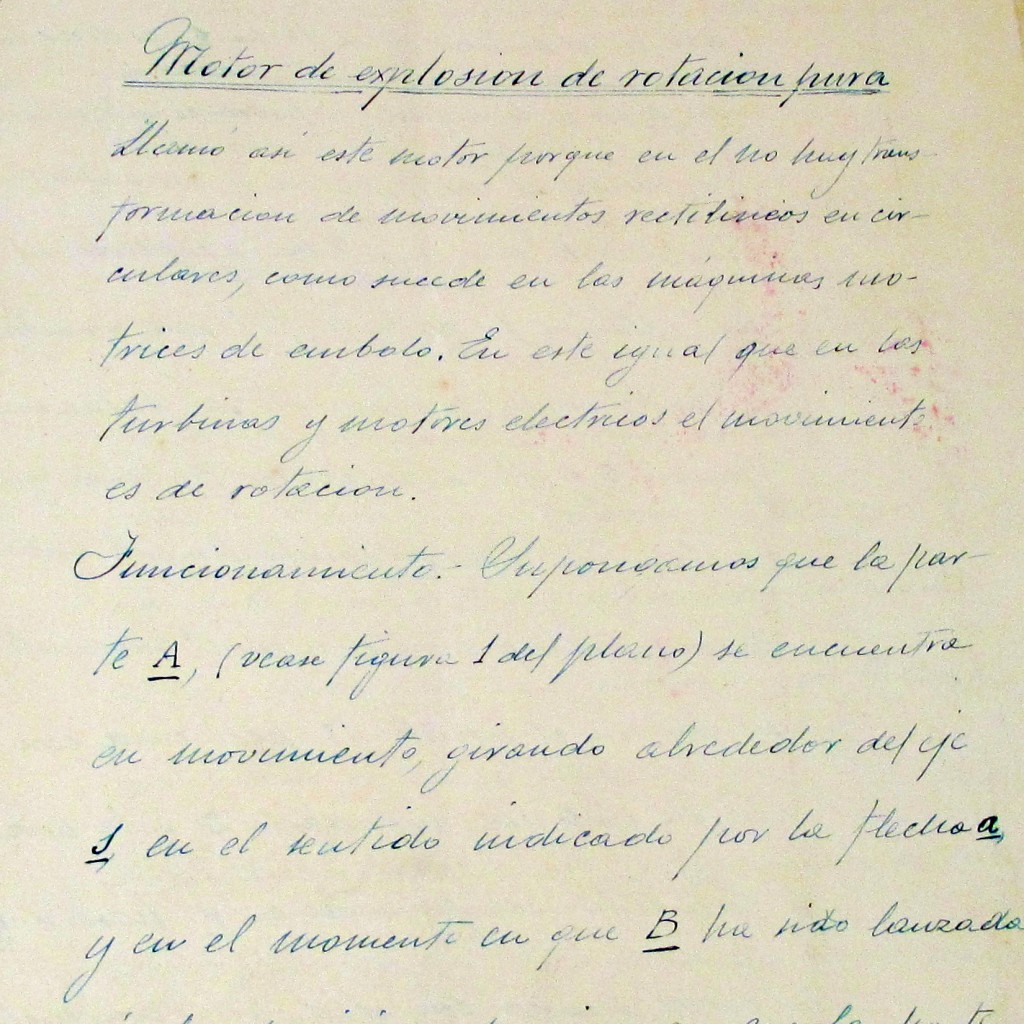 Motor de explosion de rotacion pura
Llamó asi este motor porque en el no hay trans-
formacion de movimientos rectilineos en cir-
culares, como sucede en las máquinas mo-
trices de embolo. En este igual que en las
turbinas y motores electricos el movimiento
es de rotacion.
Funcionamiento.- Supongamos que la par-
te A, (vease figura 1 del plano) se encuentra
en movimiento, girando alrededor del eje
1, en el sentido indicado por la flecha a,
y en el momento en que B ha sido lanzada